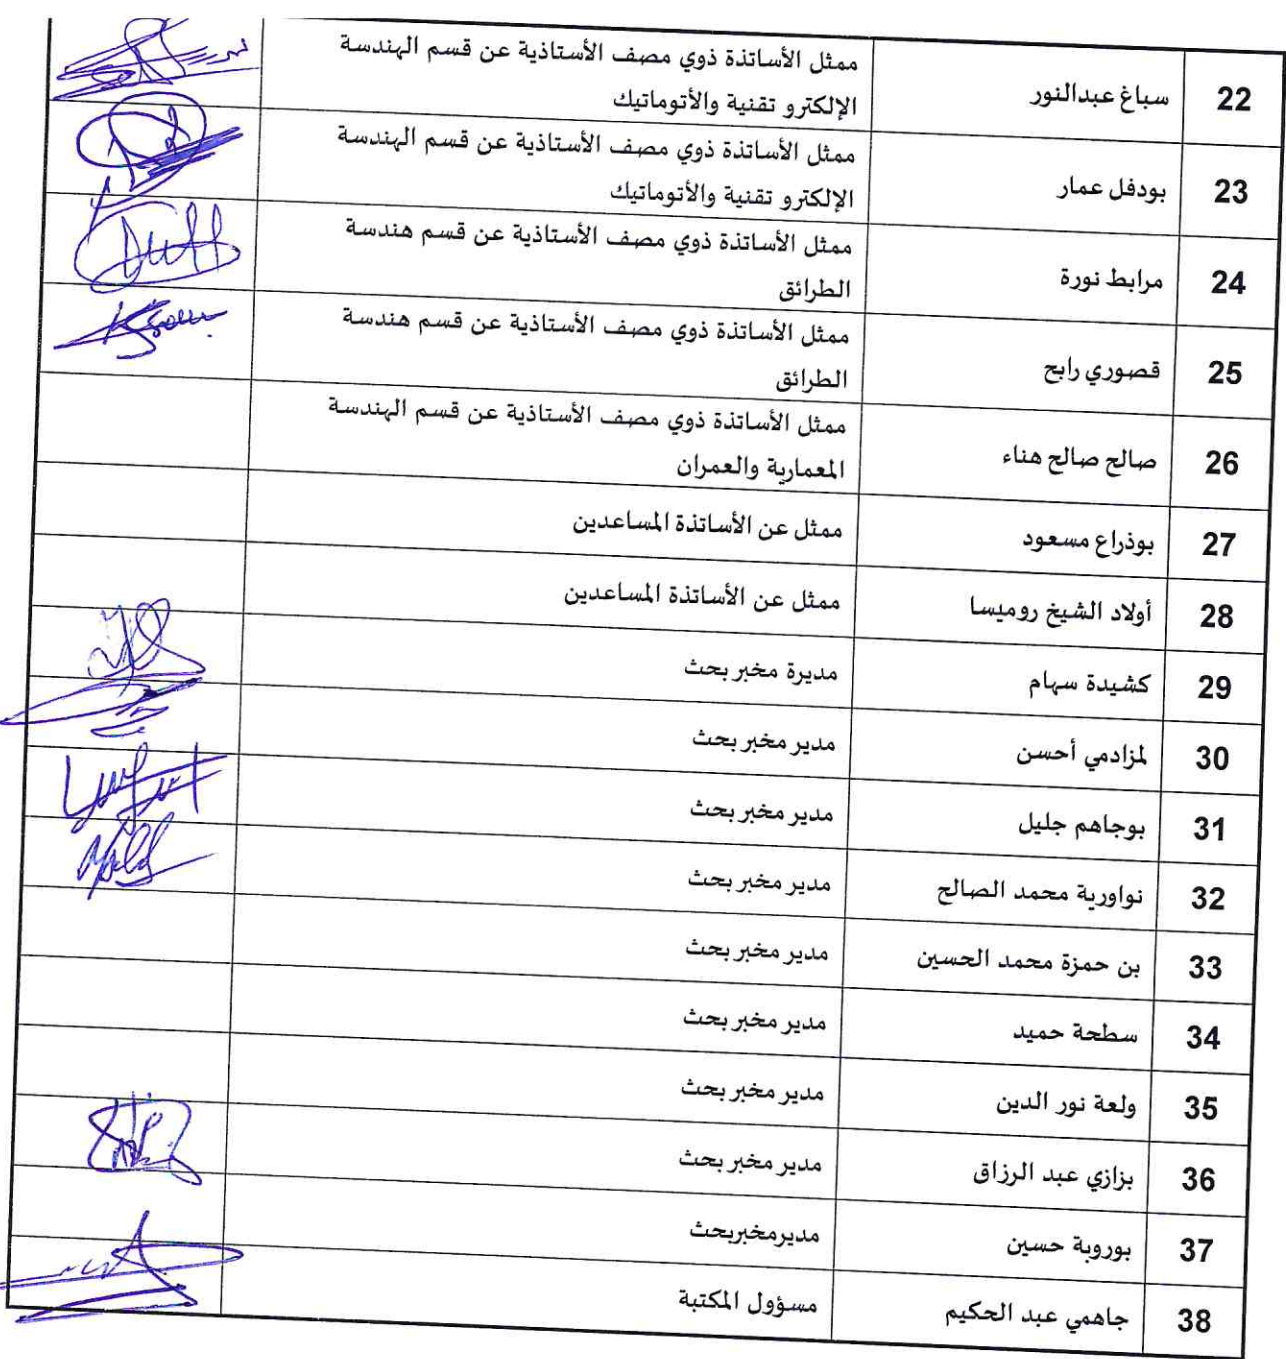 22 سباغ عبدالنور ممثل الأساتذة ذوي مصف الأستاذية عن قسم الهندسة
الإلكترو تقنية والأتوماتيك
23 بودفل عمار ممثل الأساتذة ذوي مصف الأستاذية عن قسم الهندسة
الإلكترو تقنية والأتوماتيك
24 مرابط نورة ممثل الأساتذة ذوي مصف الأستاذية عن قسم هندسة
الطرائق
25 قصوري رابح ممثل الأساتذة ذوي مصف الأستاذية عن قسم هندسة
الطرائق
26 صالح صالح هناء ممثل الأساتذة ذوي مصف الأستاذية عن قسم الهندسة
المعمارية والعمران
27 بوذراع مسعود ممثل عن الأساتذة المساعدين
28 أولاد الشيخ روميسا ممثل عن الأساتذة المساعدين
29 كشيدة سهام مديرة مخبر بحث
30 لمزادمي أحسن مدير مخبر بحث
31 بوجاهم جليل مدير مخبر بحث
32 نواورية محمد الصالح مدير مخبر بحث
33 بن حمزة محمد الحسين مدير مخبر بحث
34 سطحة حميد مدير مخبر بحث
35 ولعة نور الدين مدير مخبر بحث
36 بزازي عبد الرزاق مدير مخبر بحث
37 بوروبة حسين مديرمخبربحث
38 جاهمي عبد الحكيم مسؤول المكتبة